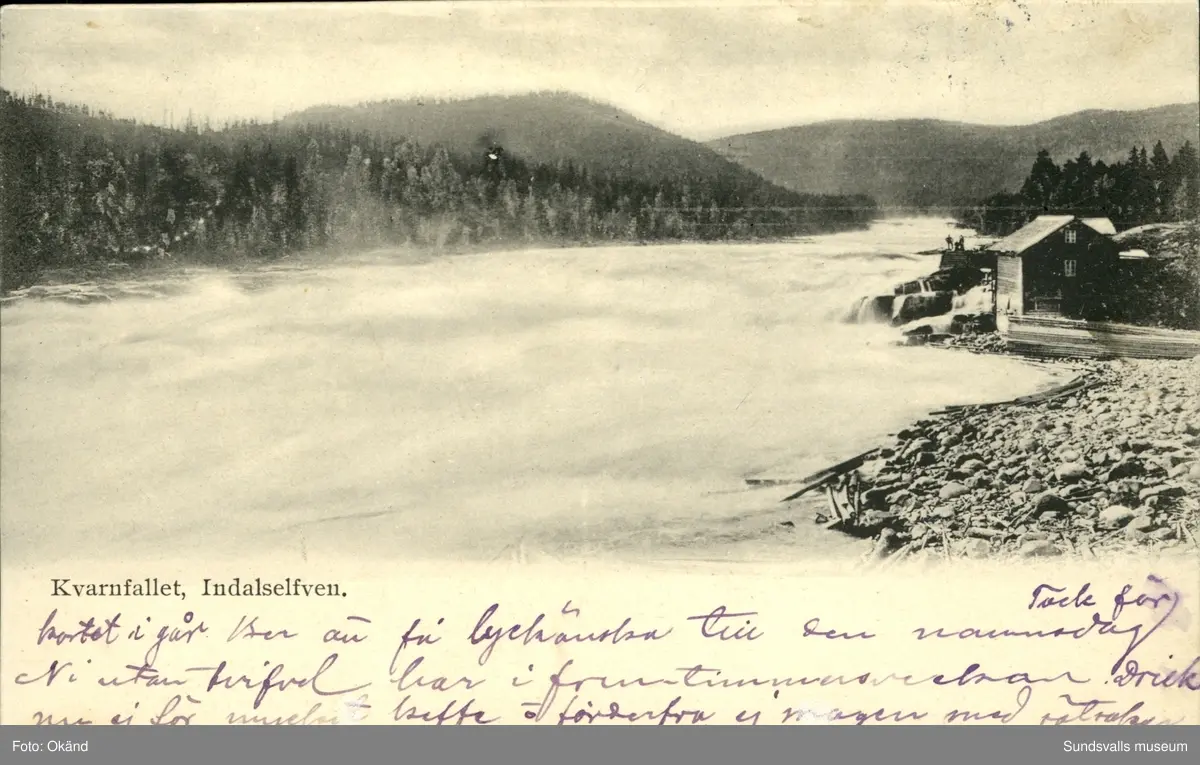 Kvarnfallet, Indalselfven.
Tack för
kortet i går Ber att få lyckönska till den namnsdag
Ni utan tvifvel har i fruntimmersveckan. Drick
nu ej för mycket kaffe o förderfva ej magen med
Foto: Okänd
Sundsvalls museum